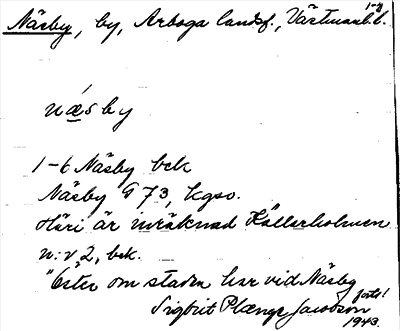 1-8
Näsby, by, Arboga landsf., Västmanl. l.
næsby
1-6 Näsby bck
Näsby G 73, kgso.
Häri är inräknad Källarholmen
n:r 2, bek.
"Öster om staden har vid Näsby
forts!
Sigbrit Plænge Jacobson
1943.